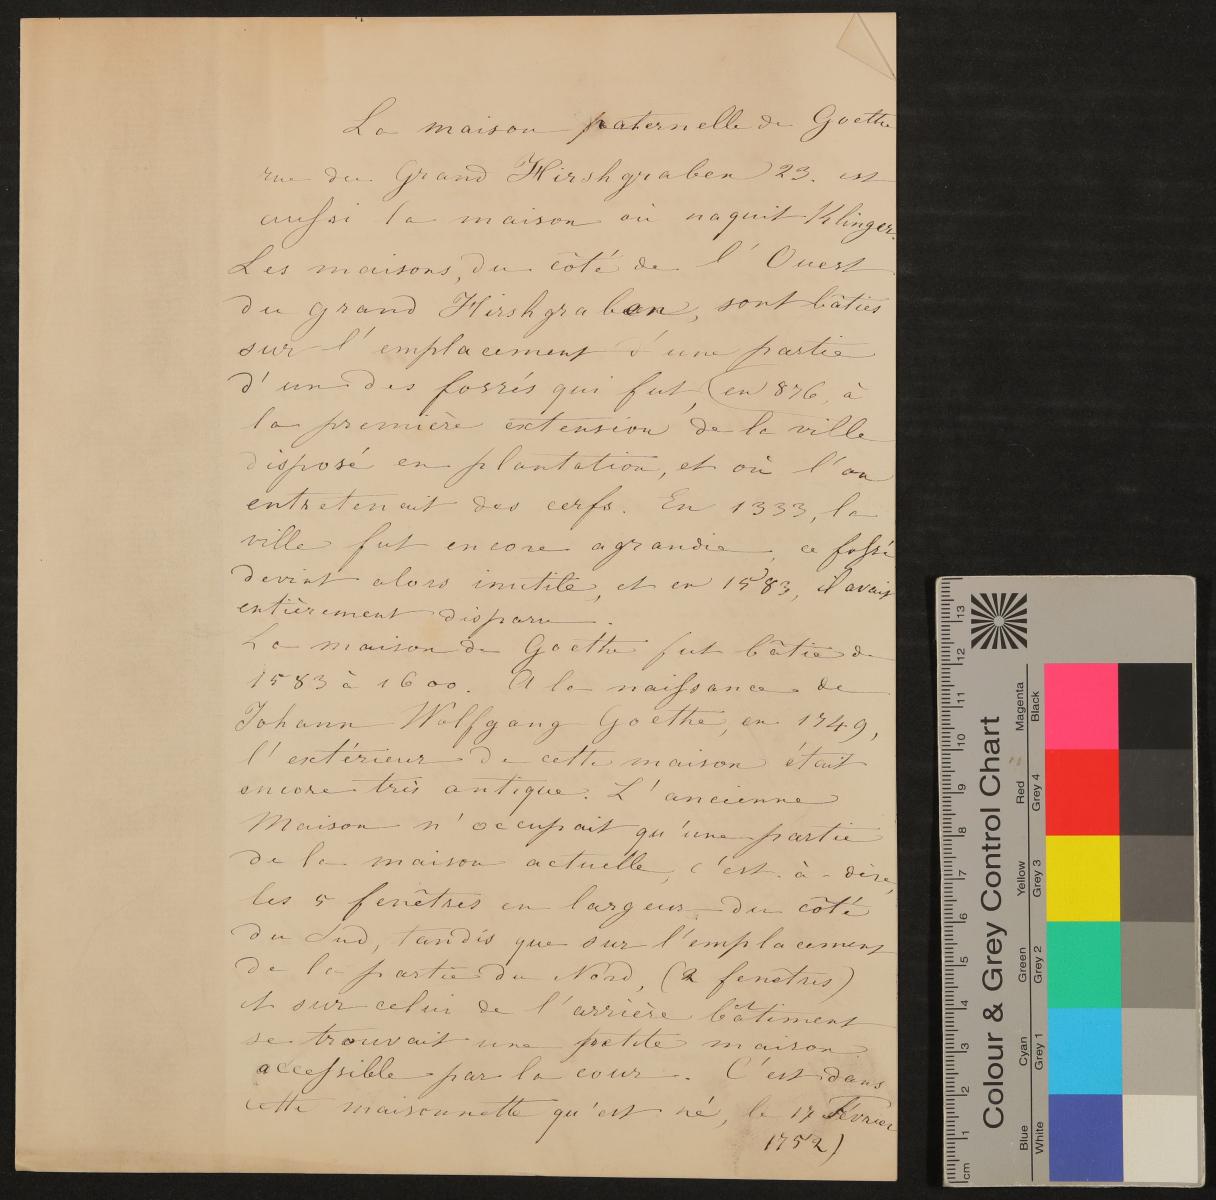 La maison paternelle de Goethe
rue du Grand Hirshgraben 23. est
aussi la maison où naquit Klinger.
Les maisons, du côté de l'Ouest
du grand Hirshgraben, sont bâties
sur l'emplacement d'une partie
d'un des fossés qui fut, (en 876, à
la première extension de la ville
disposé en plantation, et où l'on
entretenait des cerfs. En 1333, la
ville fut encore agrandie, ce fossé
devint alors inutile, et en 1583, il avait
entièrement disparu.
La maison de Goethe fut bâtie de
1583 à 1600. A la naissance de
Johann Wolfgang Goethe, en 1749,
l'extérieur de cette maison était
encore très antique. L'ancienne
Maison n'occupait qu'une partie
de la maison actuelle, c'est-à-dire,
les 5 fenêtres en largeur du côté
du Sud, tandis que sur l'emplacement
de la partie du Nord, (2 fenetres)
et sur celui de l'arrière bâtiment
se trouvait une petite maison
accessible par la cour. C'est dans
cette maisonnette qu'est né, le 17 Février
1752)
Colour & Grey Control Chart
Blue Cyan Green Yellow Red Magenta
White Grey 1 Grey 2 Grey 3 Grey 4 Black
cm 1 2 3 4 5 6 7 8 9 10 11 12 13